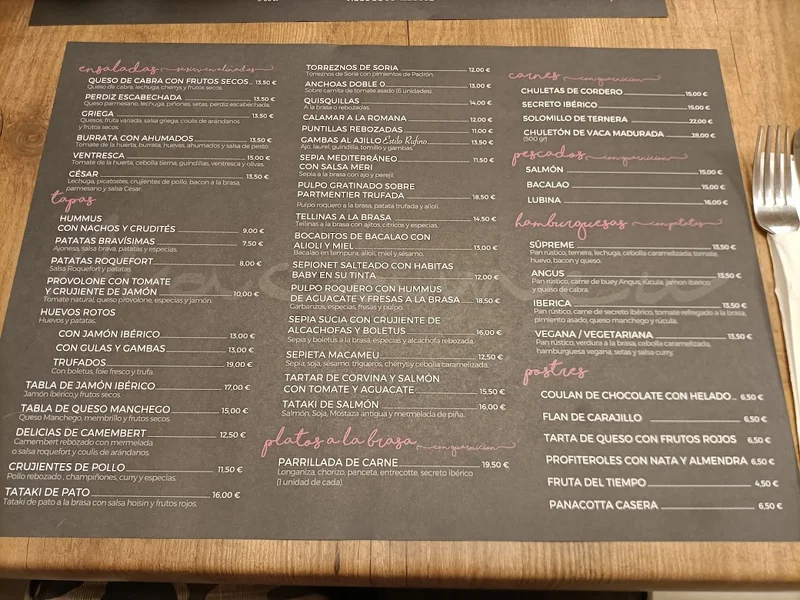 ensaladas
QUESO DE CABRA CON FRUTOS SECOS 13,50 €
Queso de cabra, lechuga, cherrys y frutos secos.
PERDIZ ESCABECHADA 13,50 €
Queso parmesano, lechuga, piñones, setas, perdiz escabechada.
GRIEGA 13,50 €
Quesos, fruta variada, salsa griega, coulis de arándanos
y frutos secos.
BURRATA CON AHUMADOS 13,50 €
Tomate de la huerta, burrata, huevas, ahumados y salsa de pesto.
VENTRESCA 15,00 €
Tomate de la huerta, cebolla tierna, guindillas, ventresca y olivas.
CÉSAR 13,50 €
Lechuga, picatostes, crujientes de pollo, bacon a la brasa,
parmesano y salsa César.
tapas
HUMMUS
CON NACHOS Y CRUDITÉS 9,00 €
PATATAS BRAVÍSIMAS 7,50 €
Ajonesa, salsa brava, patatas y especias.
PATATAS ROQUEFORT 8,00 €
Salsa Roquefort y patatas
PROVOLONE CON TOMATE
Y CRUJIENTE DE JAMÓN 10,00 €
Tomate natural, queso provolone, especias y jamón.
HUEVOS ROTOS
Huevos y patatas.
CON JAMÓN IBÉRICO 13,00 €
CON GULAS Y GAMBAS 13,00 €
TRUFADOS 19,00 €
Con boletus, foie fresco y trufa.
TABLA DE JAMÓN IBÉRICO 17,00 €
Jamón ibérico y frutos secos.
TABLA DE QUESO MANCHEGO 15,00 €
Queso Manchego, membrillo y frutos secos
DELICIAS DE CAMEMBERT 12,50 €
Camembert rebozado con mermelada
o salsa roquefort y coulis de arándanos.
CRUJIENTES DE POLLO 11,50 €
Pollo rebozado, champiñones, curry y especias.
TATAKI DE PATO 16,00 €
Tataki de pato a la brasa con salsa hoisin y frutos rojos.
TORREZNOS DE SORIA 12,00 €
Torreznos de Soria con pimientos de Padrón.
ANCHOAS DOBLE 0 13,00 €
Sobre carrita de tomate asado (6 unidades).
QUISQUILLAS 14,00 €
A la brasa o rebozadas.
CALAMAR A LA ROMANA 12,00 €
PUNTILLAS REBOZADAS 11,00 €
GAMBAS AL AJILLO Estilo Rufino 13,50 €
Ajo, laurel, guindilla, tomillo y gambas.
SEPIA MEDITERRÁNEO 11,50 €
CON SALSA MERI
Sepia a la brasa con ajo y perejil.
PULPO GRATINADO SOBRE
PARTMENTIER TRUFADA 18,50 €
Pulpo roquero a la brasa, patata trufada y alioli.
TELLINAS A LA BRASA 14,50 €
Tellinas a la brasa con ajitos, cítricos y especias.
BOCADITOS DE BACALAO CON
ALIOLI Y MIEL 13,00 €
Bacalao en tempura, alioli, miel y sésamo.
SEPIONET SALTEADO CON HABITAS
BABY EN SU TINTA 12,00 €
PULPO ROQUERO CON HUMMUS
DE AGUACATE Y FRESAS A LA BRASA 18,50 €
Garbanzos, especias, fresas y pulpo.
SEPIA SUCIA CON CRUJIENTE DE
ALCACHOFAS Y BOLETUS 16,00 €
Sepia y boletus a la brasa, especias y alcachofa rebozada.
SEPIETA MACAMEU 12,50 €
Sepia, soja, sésamo, trigueros, cherrys y cebolla caramelizada.
TARTAR DE CORVINA Y SALMÓN
CON TOMATE Y AGUACATE 15,50 €
TATAKI DE SALMÓN 16,00 €
Salmón, Soja, Mostaza antigua y mermelada de piña.
platos a la brasa con guarnicion
PARRILLADA DE CARNE 19,50 €
Longaniza, chorizo, panceta, entrecotte, secreto ibérico
(1 unidad de cada).
carnes con guarnicion
CHULETAS DE CORDERO 15,00 €
SECRETO IBÉRICO 15,00 €
SOLOMILLO DE TERNERA 22,00 €
CHULETÓN DE VACA MADURADA 28,00 €
(500 gr)
pescados con guarnicion
SALMÓN 15,00 €
BACALAO 15,00 €
LUBINA 16,00 €
hamburguesas con patatas
SÜPREME 13,50 €
Pan rústico, ternera, lechuga, cebolla caramelizada, tomate,
huevo, bacon y queso.
ANGUS 13,50 €
Pan rústico, carne de buey Angus, rúcula, jamón ibérico
y queso de cabra.
IBERICA 13,50 €
Pan rústico, carne de secreto ibérico, tomate refregado a la brasa,
pimiento asado, queso manchego y rúcula.
VEGANA / VEGETARIANA 13,50 €
Pan rústico, verdura a la brasa, cebolla caramelizada,
hamburguesa vegana, setas y salsa curry.
postres
COULAN DE CHOCOLATE CON HELADO 6,50 €
FLAN DE CARAJILLO 6,50 €
TARTA DE QUESO CON FRUTOS ROJOS 6,50 €
PROFITEROLES CON NATA Y ALMENDRA 6,50 €
FRUTA DEL TIEMPO 4,50 €
PANACOTTA CASERA 6,50 €